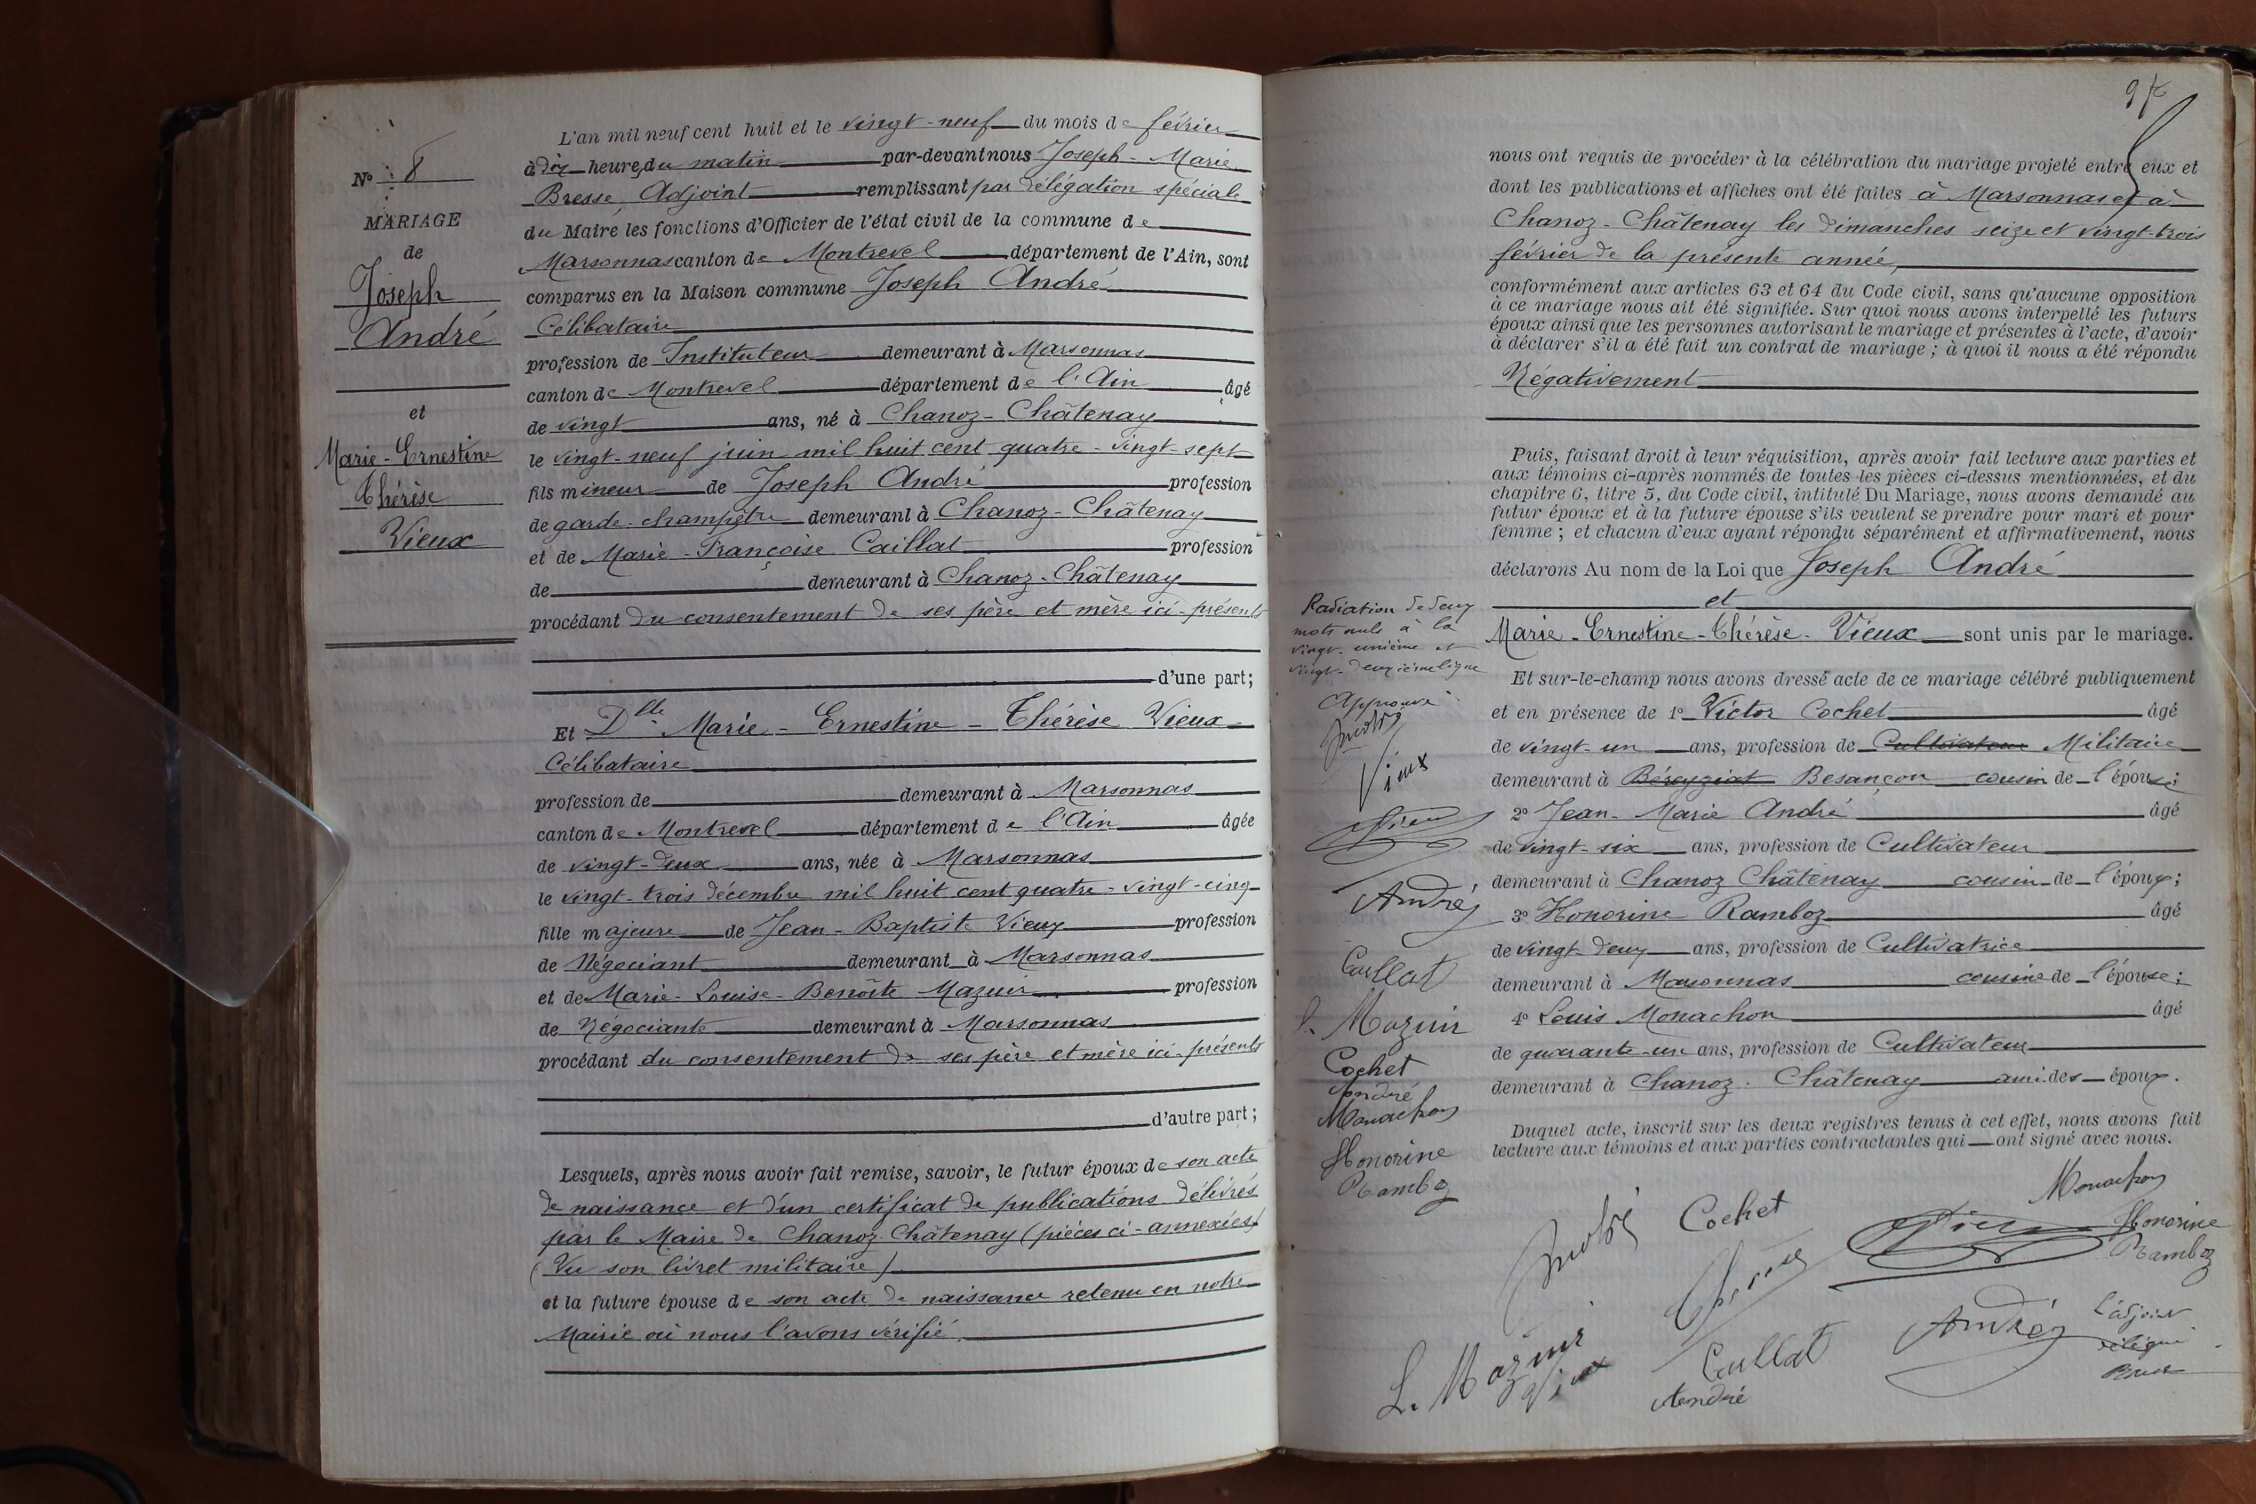 N° 8
MARIAGE
de
Joseph
André
et
Marie-Ernestine
Thérèse
Vieux
L'an mil neuf cent huit et le vingt-neuf du mois de février
à dix heures du matin par-devant nous Joseph-Marie
Bresse, Adjoint remplissant par délégation spéciale
du Maire les fonctions d'Officier de l'état civil de la commune de
Marsonnas canton de Montrevel département de l'Ain, sont
comparus en la Maison commune Joseph André
Célibataire
profession de Instituteur demeurant à Marsonnas
canton de Montrevel département de l'Ain âgé
de vingt ans, né à Chanoz-Châtenay
le vingt-neuf juin mil huit cent quatre-vingt-sept
fils mineur de Joseph André profession
de garde-champêtre demeurant à Chanoz-Châtenay
et de Marie-Françoise Caillat profession
de demeurant à Chanoz-Châtenay
procédant du consentement de ses père et mère ici-présents
d'une part;
Et Dlle Marie-Ernestine-Thérèse Vieux
Célibataire
profession de demeurant à Marsonnas
canton de Montrevel département de l'Ain âgée
de vingt-deux ans, née à Marsonnas
le vingt-trois décembre mil huit cent quatre-vingt-cinq
fille majeure de Jean-Baptiste Vieux profession
de Négociant demeurant à Marsonnas
et de Marie-Louise-Benoîte Mazuir profession
de Négociante demeurant à Marsonnas
procédant du consentement de ses père et mère ici-présents
d'autre part;
Lesquels, après nous avoir fait remise, savoir, le futur époux de son acte
de naissance et d'un certificat de publications délivrés
par le Maire de Chanoz-Châtenay (pièces ci-annexées)
(Vu son livret militaire)
et la future épouse de son acte de naissance retenu en notre
Mairie où nous l'avons vérifié.
nous ont requis de procéder à la célébration du mariage projeté entre eux et
dont les publications et affiches ont été faites à Marsonnas et à
Chanoz-Châtenay les dimanches seize et vingt-trois
février de la présente année,
conformément aux articles 63 et 64 du Code civil, sans qu'aucune opposition
à ce mariage nous ait été signifiée. Sur quoi nous avons interpellé les futurs
époux ainsi que les personnes autorisant le mariage et présentes à l'acte, d'avoir
à déclarer s'il a été fait un contrat de mariage; à quoi il nous a été répondu
Négativement
Puis, faisant droit à leur réquisition, après avoir fait lecture aux parties et
aux témoins ci-après nommés de toutes les pièces ci-dessus mentionnées, et du
chapitre 6, titre 5, du Code civil, intitulé Du Mariage, nous avons demandé au
futur époux et à la future épouse s'ils veulent se prendre pour mari et pour
femme; et chacun d'eux ayant répondu séparément et affirmativement, nous
déclarons Au nom de la Loi que Joseph André
et
Marie-Ernestine-Thérèse-Vieux sont unis par le mariage.
Et sur-le-champ nous avons dressé acte de ce mariage célébré publiquement
et en présence de 1° Victor Cochet âgé
de vingt-un ans, profession de Cultivateur Militaire
demeurant à Béreyziat Besançon cousin de l'épouse;
2° Jean-Marie André âgé
de vingt-six ans, profession de Cultivateur
demeurant à Chanoz Châtenay cousin de l'époux;
3° Honorine Ramboz âgé
de vingt deux ans, profession de Cultivatrice
demeurant à Marsonnas cousine de l'épouse;
4° Louis Monachon âgé
de quarante-un ans, profession de Cultivateur
demeurant à Chanoz-Châtenay ami des époux.
Duquel acte, inscrit sur les deux registres tenus à cet effet, nous avons fait
lecture aux témoins et aux parties contractantes qui ont signé avec nous.
Radiation de deux
mots nuls à la
vingt-unième et
vingt-deuxième ligne
Approuvé
André
Vieux
Vieux
André
Caillat
L. Mazuir
Cochet
André
Monachon
Honorine
Ramboz
Monachon
André Cochet Vieux Honorine
Ramboz
Vieux
L. Mazuir Vieux Caillat André L'adjoint
délégué
André Bresse